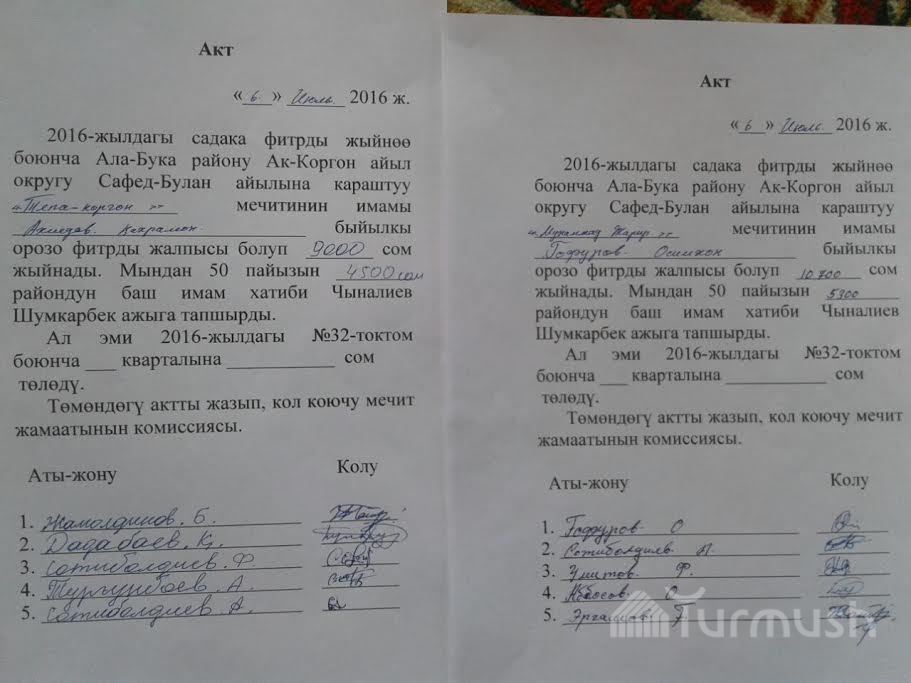 Акт
« 6 » Июль 2016 ж.
2016-жылдагы садака фитрды жыйнөө
боюнча Ала-Бука району Ак-Коргон айыл
округу Сафед-Булан айылына караштуу
«Тепа-коргон» мечитинин имамы
Ахмедов. Кахрамон быйылкы
орозо фитрды жалпысы болуп 9000 сом
жыйнады. Мындан 50 пайызын 4500 сом
райондун баш имам хатиби Чыналиев
Шумкарбек ажыга тапшырды.
Ал эми 2016-жылдагы №32-токтом
боюнча ___ кварталына ___________ сом
төлөдү.
Төмөндөгү актты жазып, кол коючу мечит
жамаатынын комиссиясы.
Аты-жөну Колу
1. Жамолдинов. Б.
2. Дадабаев. К.
3. Сотиболдиев. Ф.
4. Тургунбаев. А.
5. Сотиболдиев. А.
Акт
« 6 » Июль 2016 ж.
2016-жылдагы садака фитрды жыйнөө
боюнча Ала-Бука району Ак-Коргон айыл
округу Сафед-Булан айылына караштуу
«Мухаммад Тахир» мечитинин имамы
Гофуров Осимжон быйылкы
орозо фитрды жалпысы болуп 10 700 сом
жыйнады. Мындан 50 пайызын 5300
райондун баш имам хатиби Чыналиев
Шумкарбек ажыга тапшырды.
Ал эми 2016-жылдагы №32-токтом
боюнча ___ кварталына ___________ сом
төлөдү.
Төмөндөгү актты жазып, кол коючу мечит
жамаатынын комиссиясы.
Аты-жөну Колу
1. Гофуров О
2. Сотиболдиев
3. Умитов Ф.
4. О
5. Эргашов
Turmush